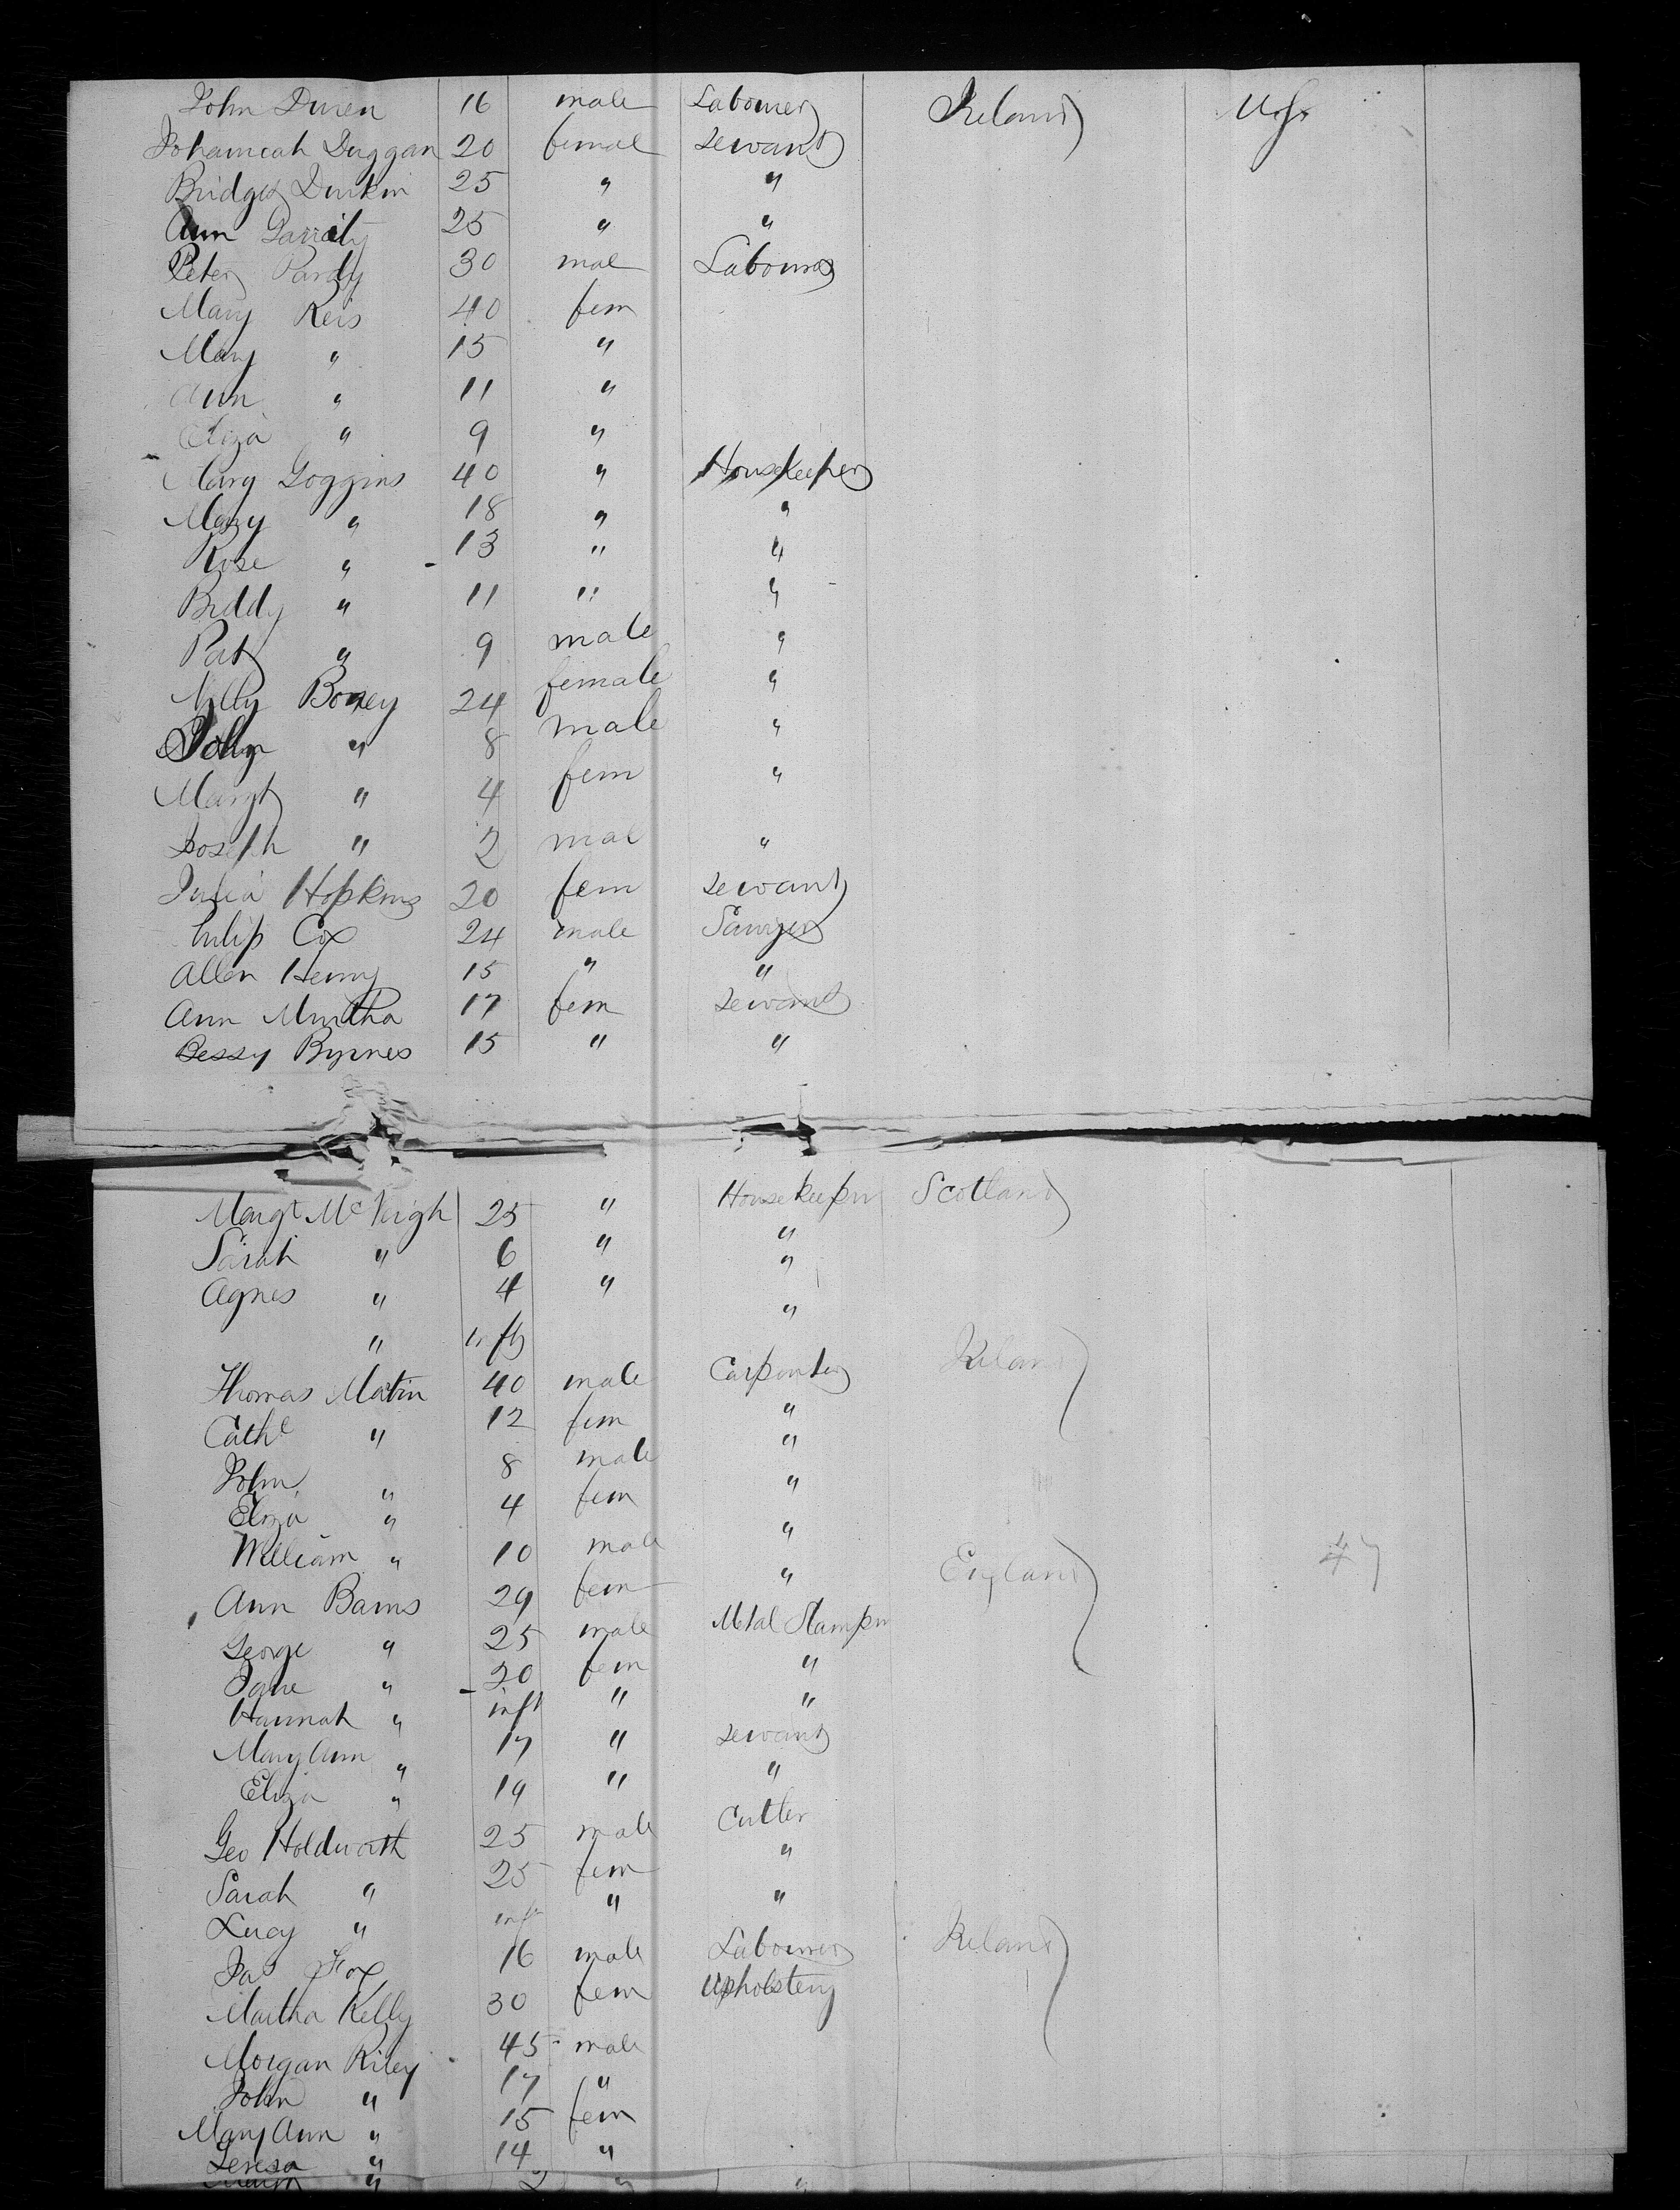 John Duren 16 male Labourer Ireland U.S.
Johannah Duggan 20 femal servant
Bridget Durkin 25 " "
Ann Garraty 25 " "
Peter Pardy 30 mal Labourer
Mary Reis 40 fem
Mary " 15 "
Ann " 11 "
Eliza " 9 "
Mary Goggins 40 " Housekeeper
Mary " 18 " "
Rose " 13 " "
Biddy " 11 " "
Pat " 9 male "
Nelly Boney 24 female "
John " 8 male "
Margt " 4 fem "
Joseph " 2 mal "
Julia Hopkins 20 fem servant
Philip Cox 24 male Sawyer
Allen Henry 15 " "
Ann Murtha 17 fem servant
Bessy Byrnes 15 " "
Margt McVeigh 25 " Housekeeper Scotland
Sarah " 6 " "
Agnes " 4 " "
" inft "
Thomas Matin 40 male Carpenter Ireland
Cathe " 12 fem "
John " 8 male "
Eliza " 4 fem "
William " 10 male "
Ann Barns 29 fem " England 47
George " 25 male Metal Stamper
Jane " 20 fem "
Hannah " inft " "
Mary Ann " 17 " servant
Eliza " 19 " "
Geo Holdworth 25 male Cutler
Sarah " 25 fem "
Lucy " inft " "
Jas Fox 16 male Labourer Ireland
Martha Kelly 30 fem Upholstery
Morgan Riley 45 male
John " 17 "
Mary Ann " 15 fem
Teresa " 14 "
" 2 " "